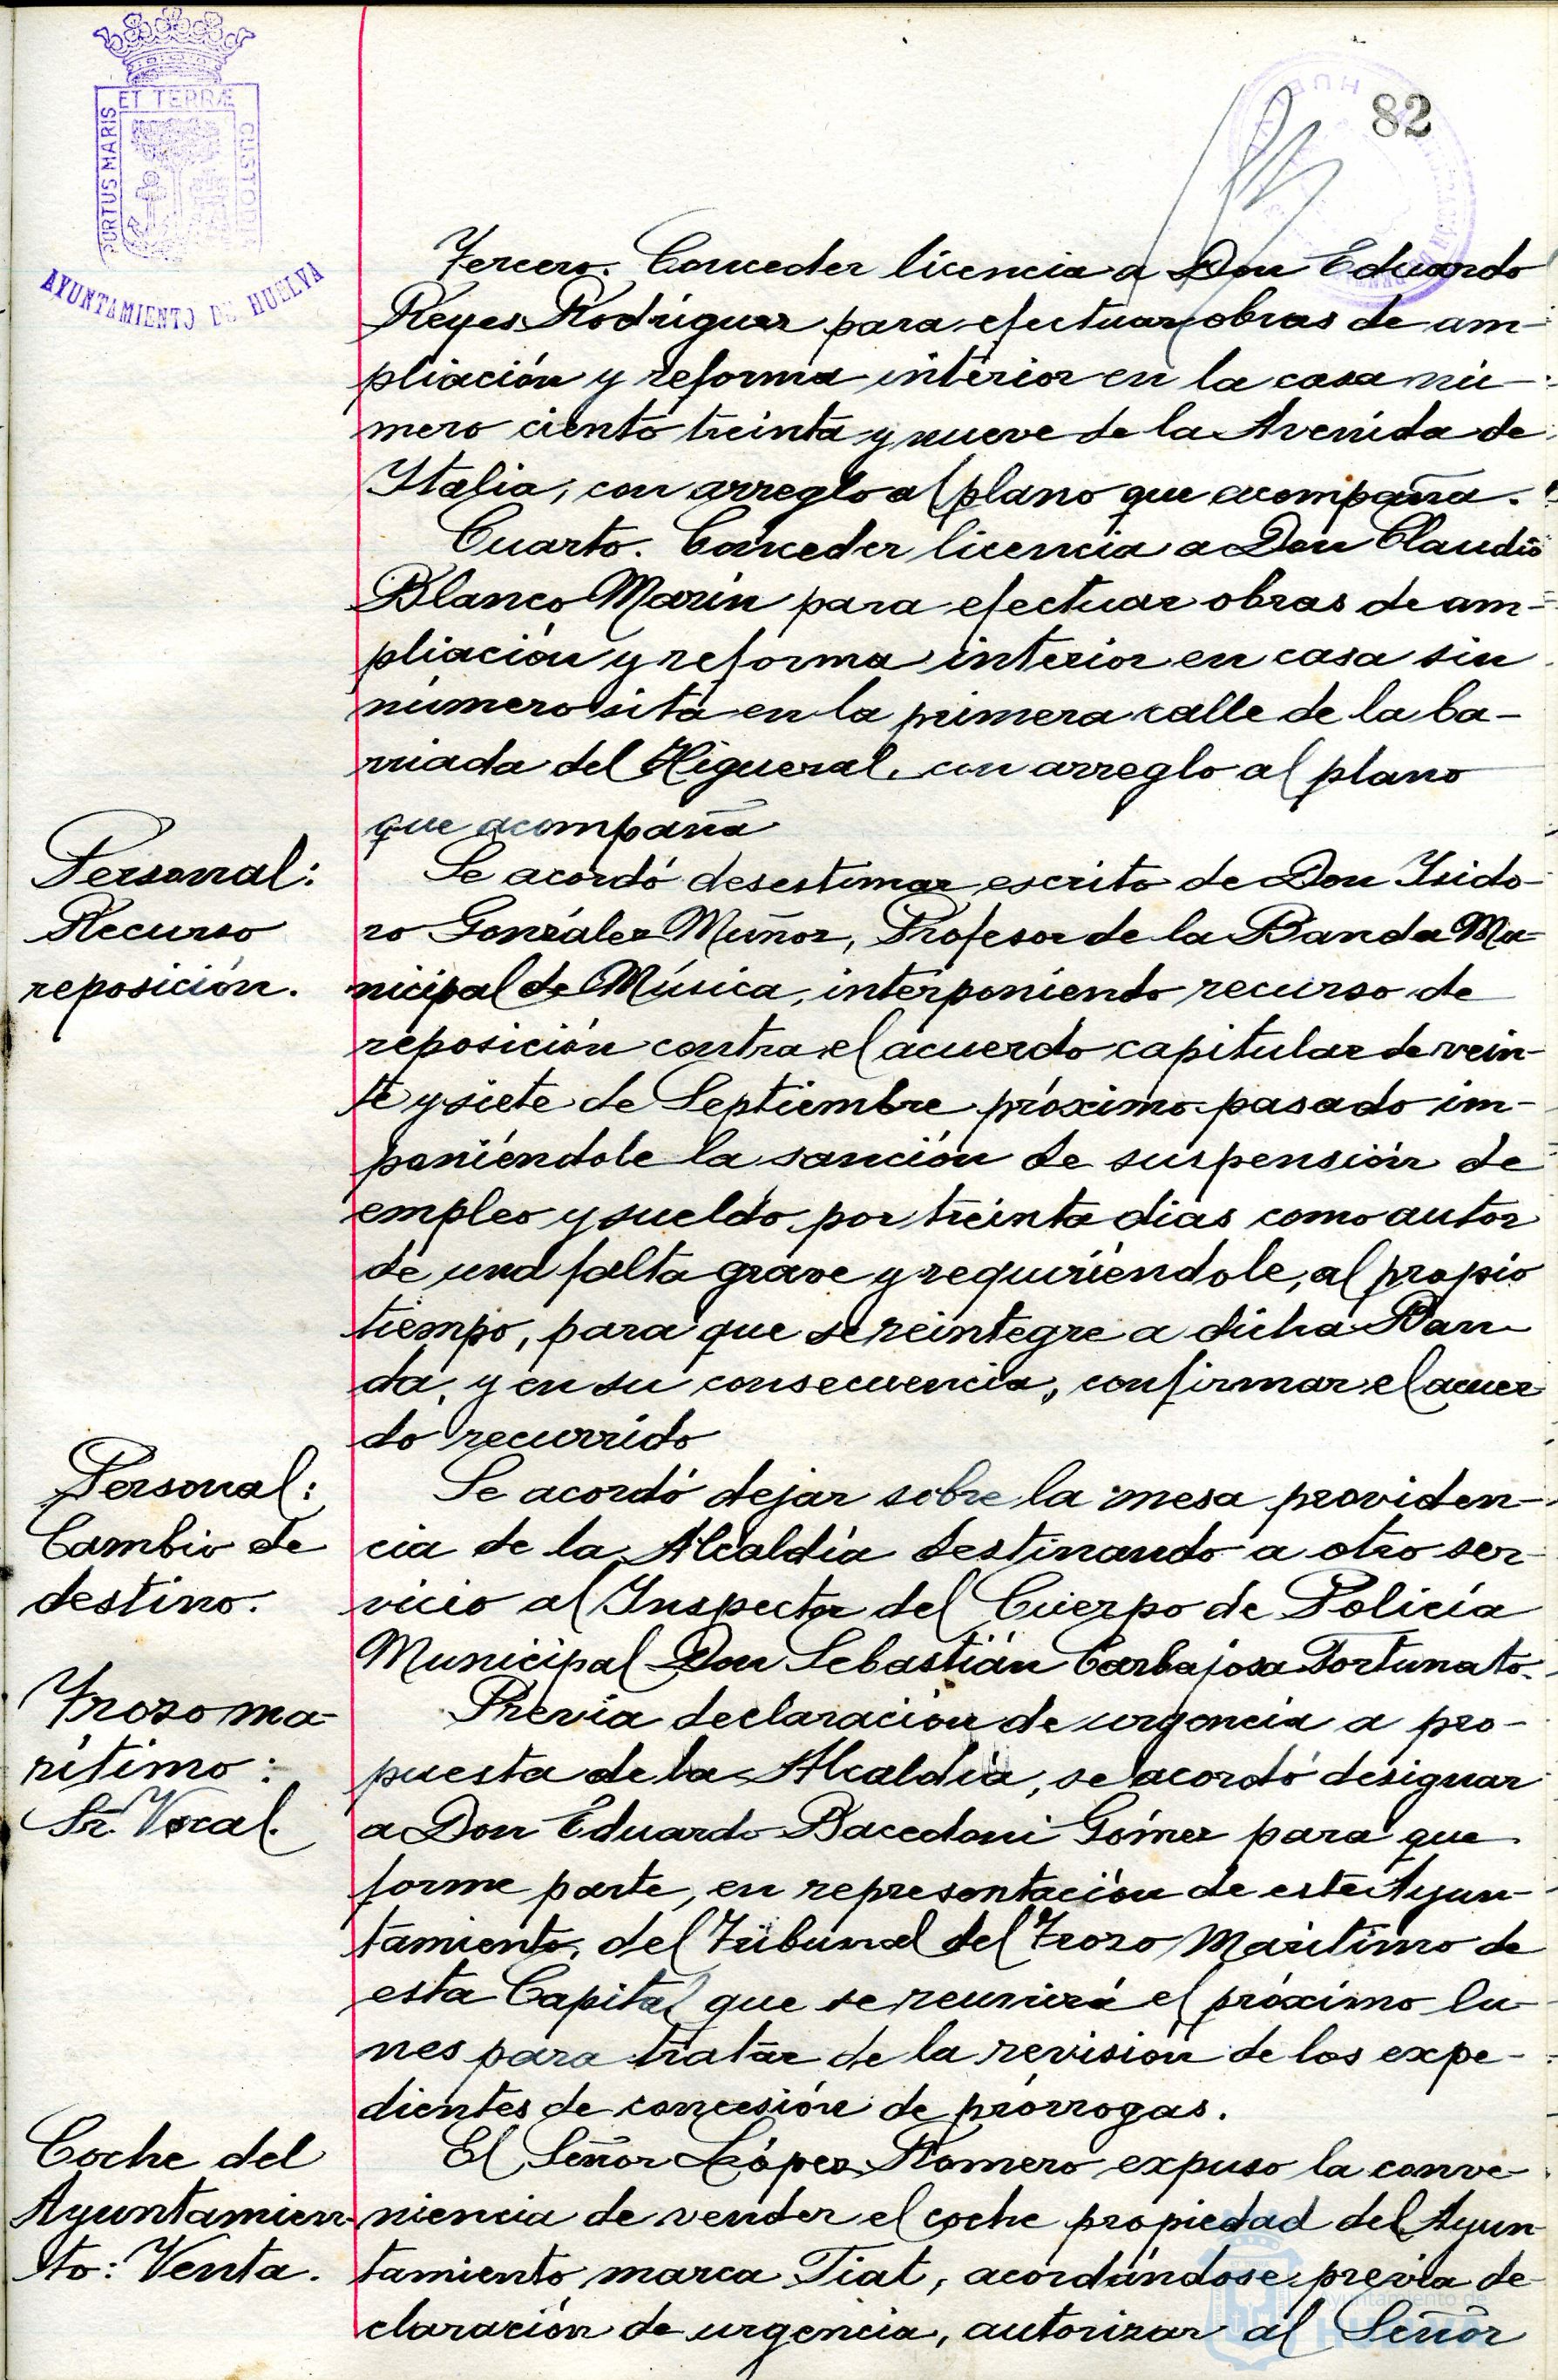 ET TERRÆ
PORTUS MARIS
CUSTODIA
AYUNTAMIENTO DE HUELVA
82
Tercero. Conceder licencia a Don Eduardo
Reyes Rodriguez para efectuar obras de am-
pliación y reforma interior en la casa nú-
mero ciento treinta y nueve de la Avenida de
Italia, con arreglo al plano que acompaña.
Cuarto. Conceder licencia a Don Claudio
Blanco Marin para efectuar obras de am-
pliación y reforma interior en casa sin
número sita en la primera calle de la ba-
rriada del Higueral, con arreglo al plano
que acompaña
Personal:
Recurso
reposición.
Se acordó desestimar escrito de Don Isido-
ro González Muñoz, Profesor de la Banda Mu-
nicipal de Música, interponiendo recurso de
reposición contra el acuerdo capitular de vein-
te y siete de Septiembre próximo pasado im-
poniéndole la sanción de suspensión de
empleo y sueldo por treinta dias como autor
de una falta grave y requiriéndole, al propio
tiempo, para que se reintegre a dicha Ban-
da, y en su consecuencia, confirmar el acuer
do recurrido
Personal:
Cambio de
destino.
Se acordó dejar sobre la mesa providen-
cia de la Alcaldía destinando a otro ser-
vicio al Inspector del Cuerpo de Policía
Municipal Don Sebastián Carbajosa Fortunato.
Trozo ma-
rítimo:
Sr. Vocal.
Previa declaración de urgencia a pro-
puesta de la Alcaldía, se acordó designar
a Don Eduardo Bacedoni Gómez para que
forme parte, en representación de este Ayun-
tamiento, del Tribunal del Trozo Marítimo de
esta Capital que se reunirá el próximo lu-
nes para tratar de la revisión de los expe-
dientes de concesión de prórrogas.
Coche del
Ayuntamien-
to: Venta.
El Señor López Romero expuso la conve-
niencia de vender el coche propiedad del Ayun-
tamiento marca Fiat, acordándose, previa de-
claración de urgencia, autorizar al Señor
Ayuntamiento de
HUELVA